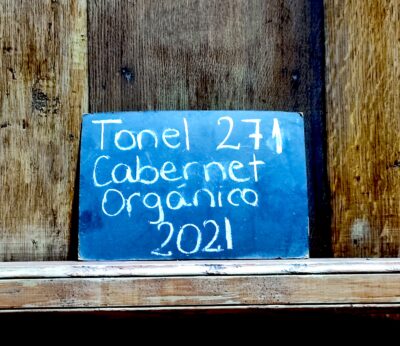 Tonel 271
Cabernet
Orgánico
2021